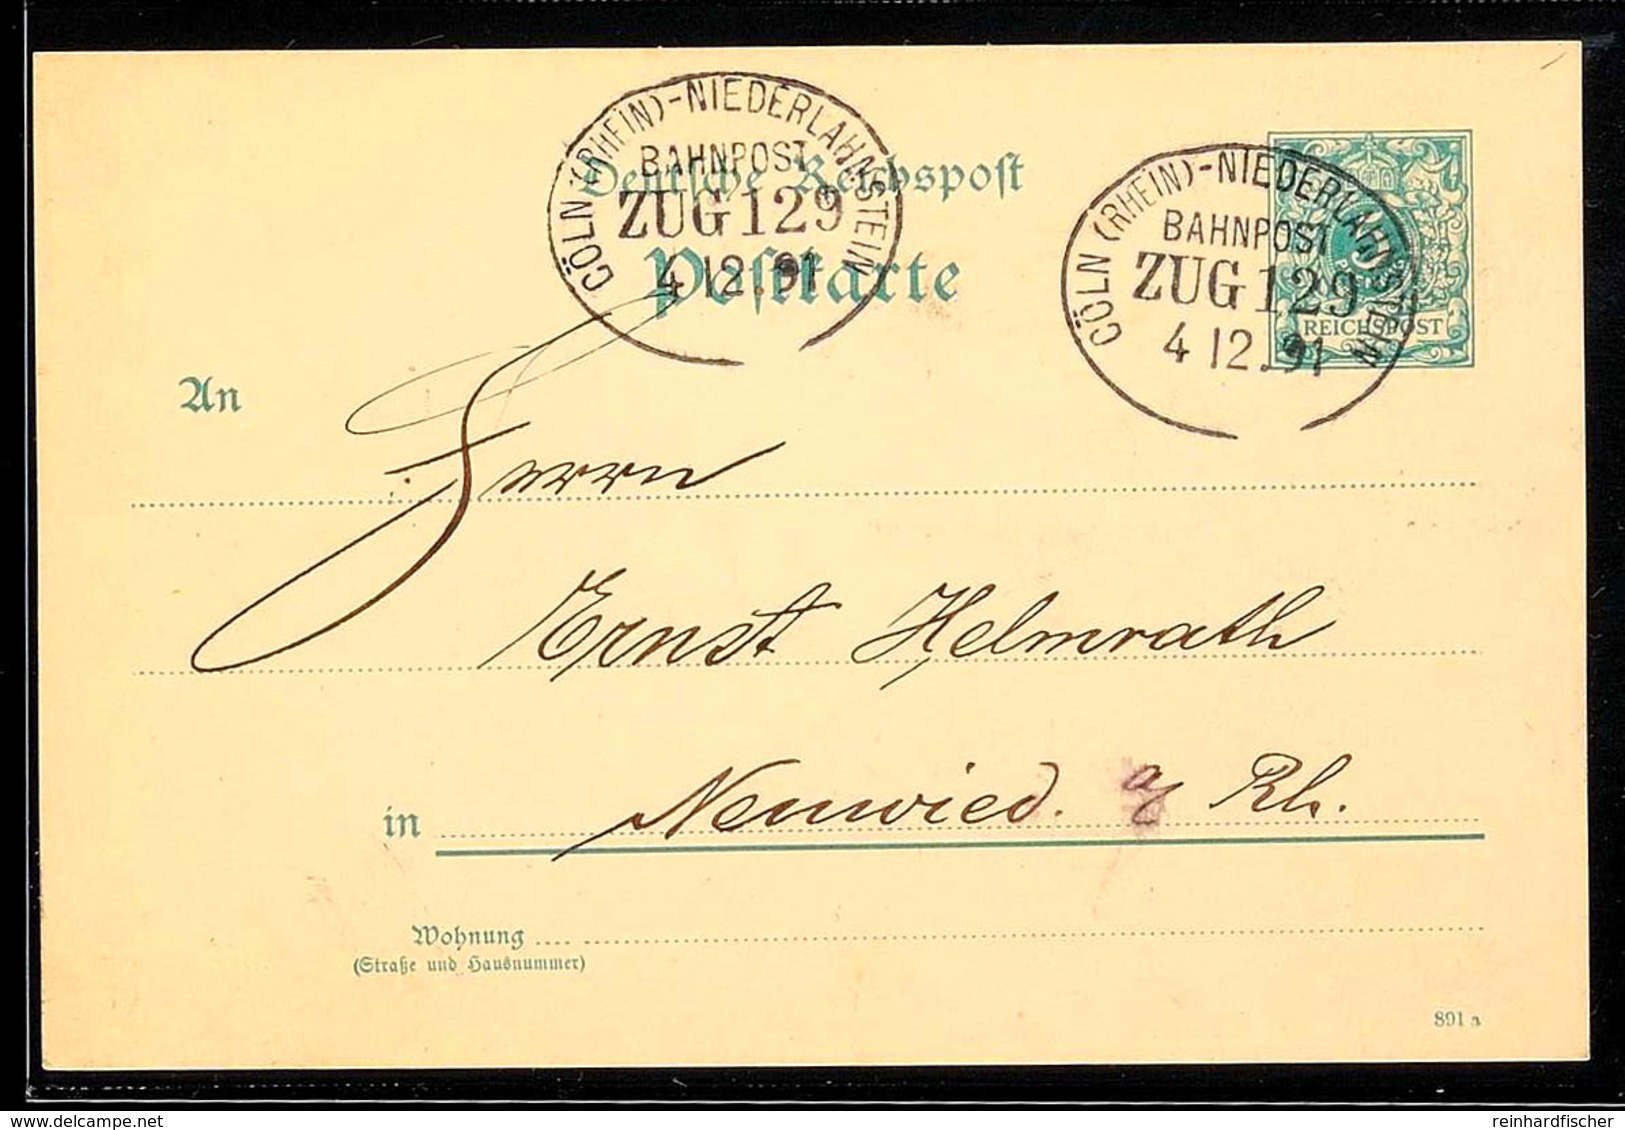 CÖLN (RHEIN)-NIEDERLAHNSTEIN
BAHNPOST
ZUG 129
4 12.91
CÖLN (RHEIN)-NIEDERLAHNSTEIN
BAHNPOST
ZUG 129
4 12.91
Deutsche Reichspost
Postkarte
5
REICHSPOST
An
Herrn
Ernst Helmrath
in Neuwied. a/ Rh.
Wohnung
(Straße und Hausnummer)
891 a
delcampe.net
reinhardfischer